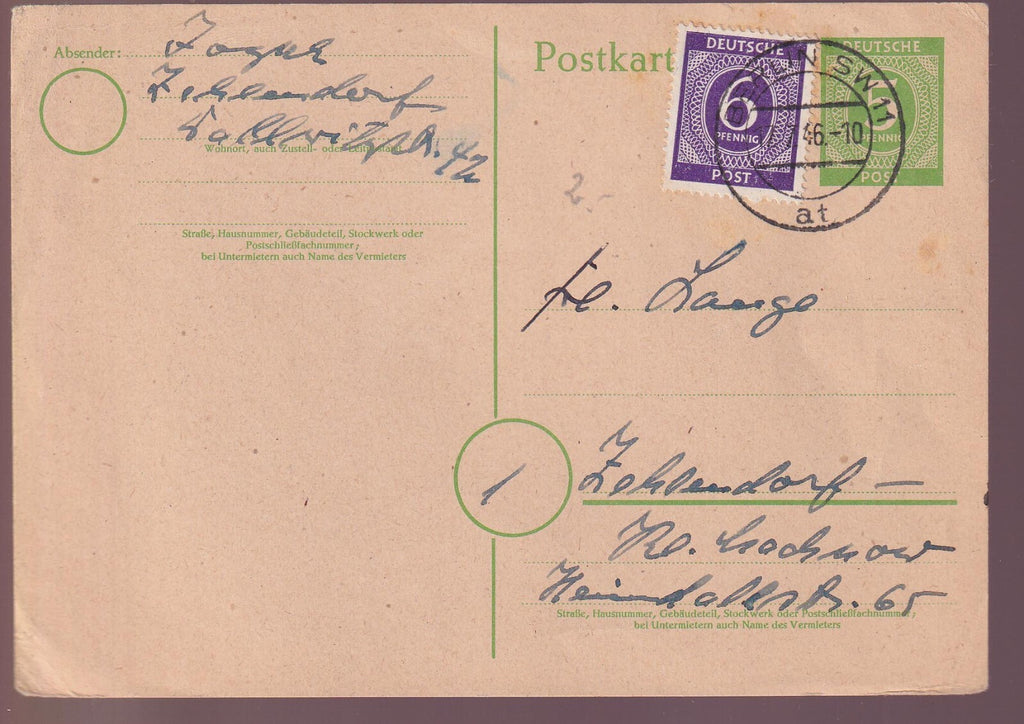 Absender:
Zehlendorf
Wohnort, auch Zustell- oder Leitpostamt
Straße, Hausnummer, Gebäudeteil, Stockwerk oder
Postschließfachnummer;
bei Untermietern auch Name des Vermieters
Postkart
DEUTSCHE
6
PFENNIG
POST
DEUTSCHE
PFENNIG
POST
SW 11
46.-10
at
2.-
Lange
1
Zehlendorf -
Kl. Machnow
Heimdallstr. 65
Straße, Hausnummer, Gebäudeteil, Stockwerk oder Postschließfachnummer;
bei Untermietern auch Name des Vermieters